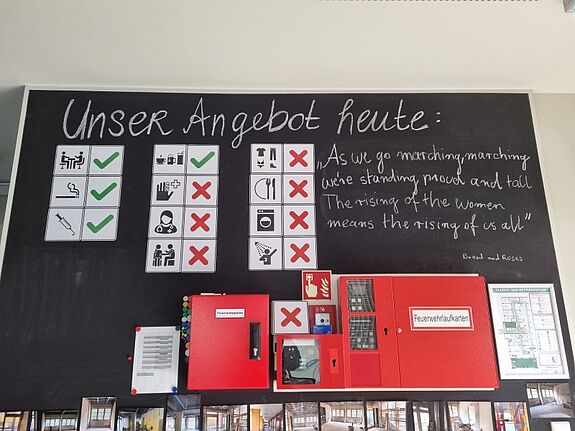 Unser Angebot heute:
„As we go marching, marching
we're standing proud and tall
The rising of the women
means the rising of us all"
Bread and Roses
Feuerwehrlaufkarten